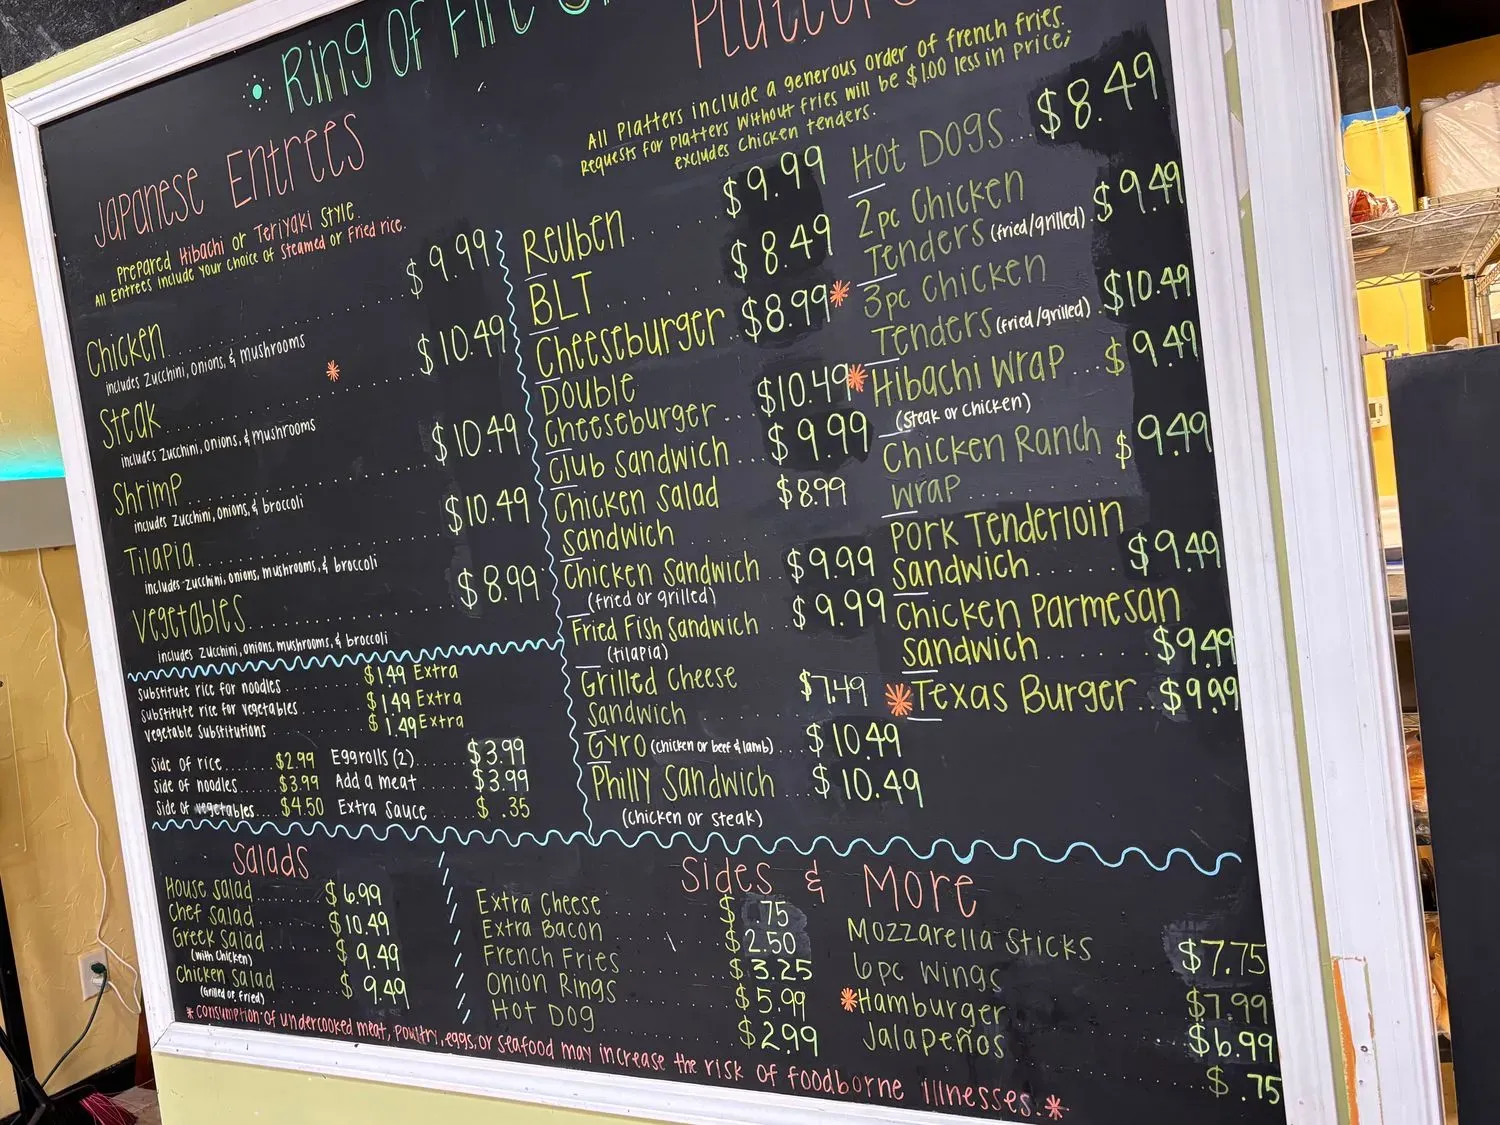 Ring Of Fire
Japanese Entrees
Prepared Hibachi or Teriyaki Style.
All Entrees include your choice of Steamed or Fried rice.
Chicken.......... $9.99
includes zucchini, onions, & mushrooms
Steak.......... $10.49
includes zucchini, onions, & mushrooms
Shrimp.......... $10.49
includes zucchini, onions, & broccoli
Tilapia.......... $10.49
includes zucchini, onions, mushrooms, & broccoli
Vegetables.......... $8.99
includes zucchini, onions, mushrooms, & broccoli
Substitute rice for noodles.......... $1.49 Extra
Substitute rice for vegetables.......... $1.49 Extra
Vegetable Substitutions $1.49 Extra
Side of rice..... $2.99
Side of noodles..... $3.99
Side of vegetables.... $4.50
Eggrolls (2)..... $3.99
Add a meat..... $3.99
Extra Sauce..... $ .35
Platters
All Platters include a generous order of french fries.
Requests for Platters without fries will be $1.00 less in price;
excludes chicken tenders.
Reuben..... $9.99
BLT....... $8.49
Cheeseburger $8.99*
Double
Cheeseburger... $10.49*
Club Sandwich... $9.99
Chicken Salad $8.99
Sandwich
Chicken Sandwich.. $9.99
(fried or grilled)
Fried Fish Sandwich $9.99
(tilapia)
Grilled Cheese $7.49
Sandwich
Gyro (chicken or beef & lamb)... $10.49
Philly Sandwich... $10.49
(chicken or steak)
Hot Dogs... $8.49
2pc Chicken
Tenders (fried/grilled). $9.49
3pc Chicken
Tenders (fried/grilled). $10.49
Hibachi Wrap... $9.49
(steak or chicken)
Chicken Ranch $9.49
Wrap
Pork Tenderloin
Sandwich...... $9.49
Chicken Parmesan
Sandwich...... $9.49
*Texas Burger.. $9.99
Salads
House Salad $6.99
Chef Salad $10.49
Greek Salad $9.49
(with chicken)
Chicken Salad $9.49
(Grilled or Fried)
Sides & More
Extra Cheese $ .75
Extra Bacon $2.50
French Fries $3.25
Onion Rings $5.99
Hot Dog $2.99
Mozzarella Sticks $7.75
6pc Wings $7.99
*Hamburger $6.99
Jalapeños $ .75
*Consumption of undercooked meat, poultry, eggs, or seafood may increase the risk of foodborne illnesses.*